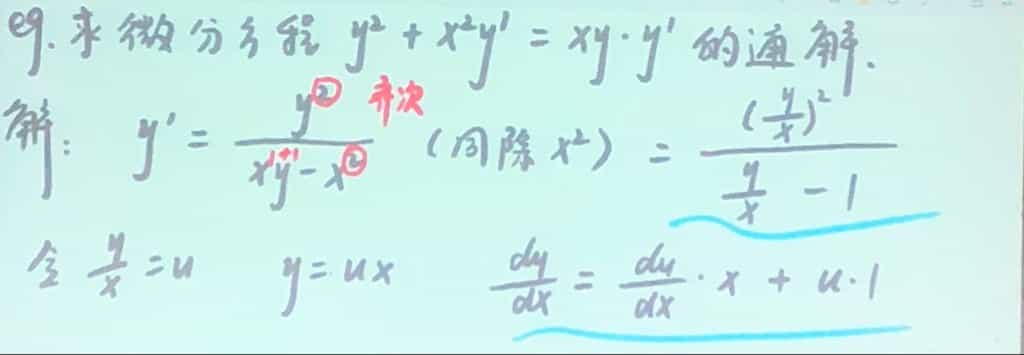 eg. 求微分方程 y² + x²y' = xy·y' 的通解.
解: y' = y² / (xy - x²) 齐次 (同除 x²) = (y/x)² / (y/x - 1)
令 y/x = u  y = ux  dy/dx = du/dx · x + u·1